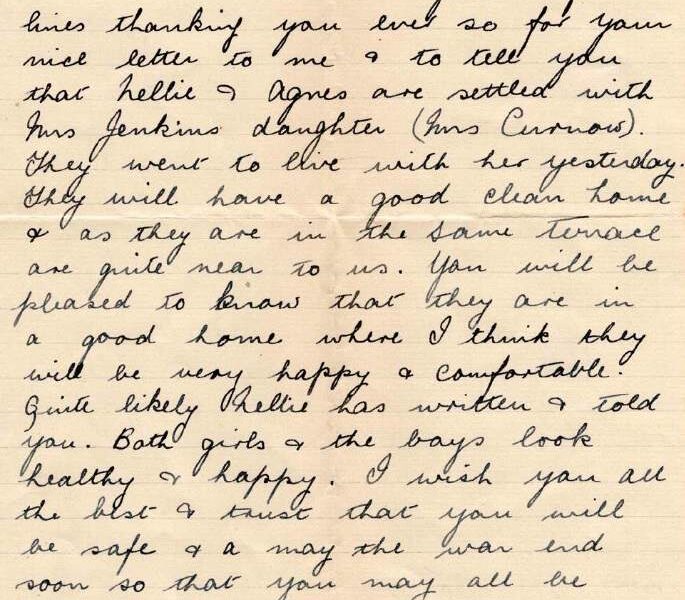 lines thanking you ever so for your
nice letter to me & to tell you
that Nellie & Agnes are settled with
Mrs Jenkins daughter (Mrs Curnow).
They went to live with her yesterday.
They will have a good clean home
& as they are in the same terrace
are quite near to us. You will be
pleased to know that they are in
a good home where I think they
will be very happy & comfortable.
Quite likely Nellie has written & told
you. Both girls & the boys look
healthy & happy. I wish you all
the best & trust that you will
be safe & a may the war end
soon so that you may all be